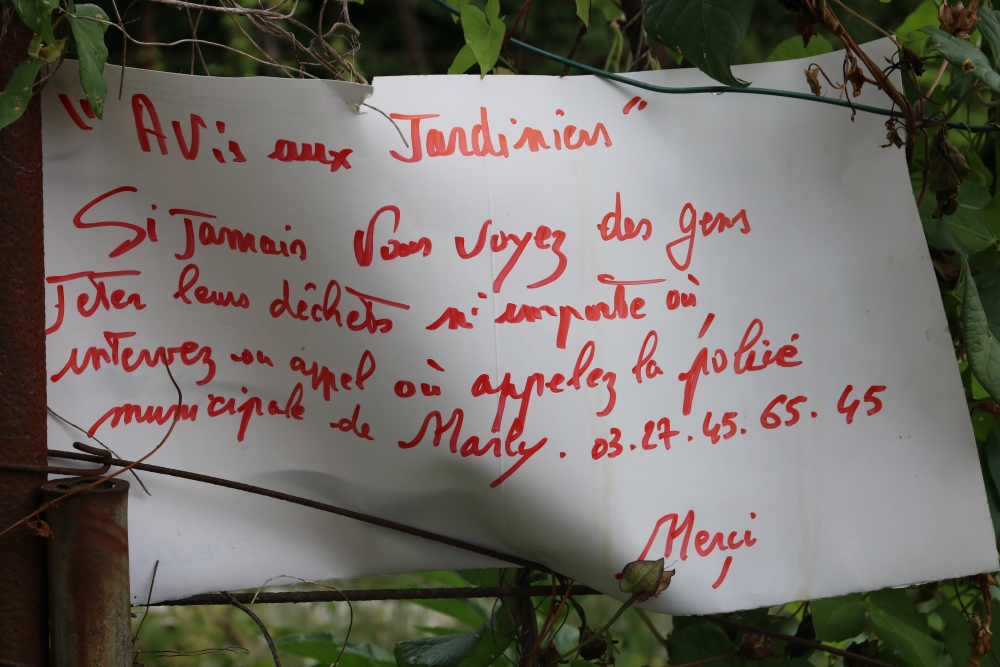 "Avis aux Jardiniers"
Si Jamais Vous voyez des gens
Jeter leurs déchets n'importe où
intervez ou appel où appelez la police
municipale de Marly. 03.27.45.65.45
Merçi